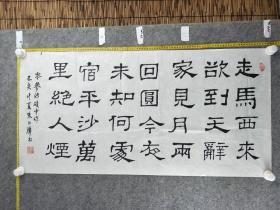 走馬西來
欲到天辭
家見月兩
回圓今夜
未知何處
宿平沙萬
里絕人煙
岑參詩磧中作
己亥